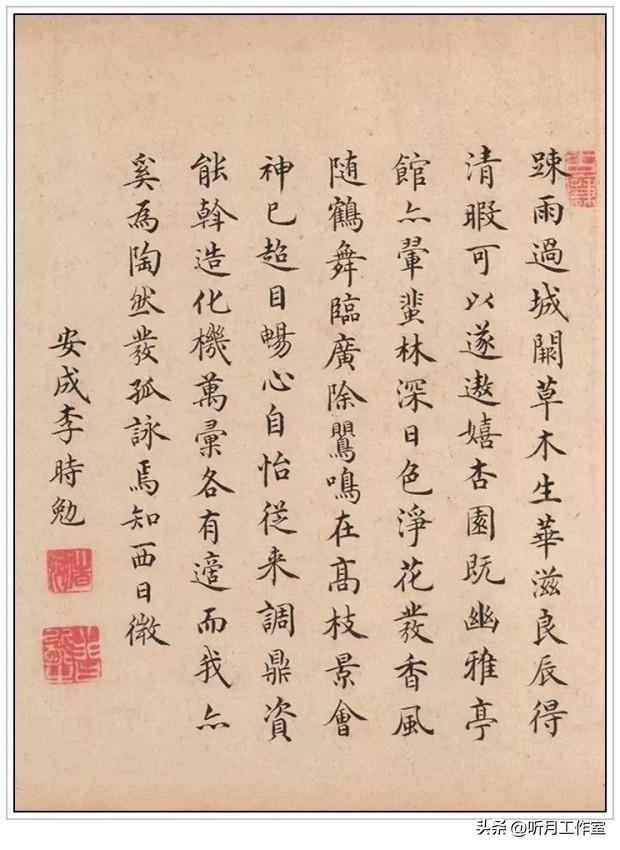 踈雨過城闕草木生華滋良辰得
清暇可以遂遨嬉杏園既幽雅亭
館亦翬蜚林深日色淨花發香風
随鶴舞臨廣除鸎鳴在髙枝景會
神已超目暢心自怡従来調鼎資
能斡造化機萬彙各有適而我亦
奚為陶然發孤詠焉知西日微
安成李時勉
头条 @听月工作室